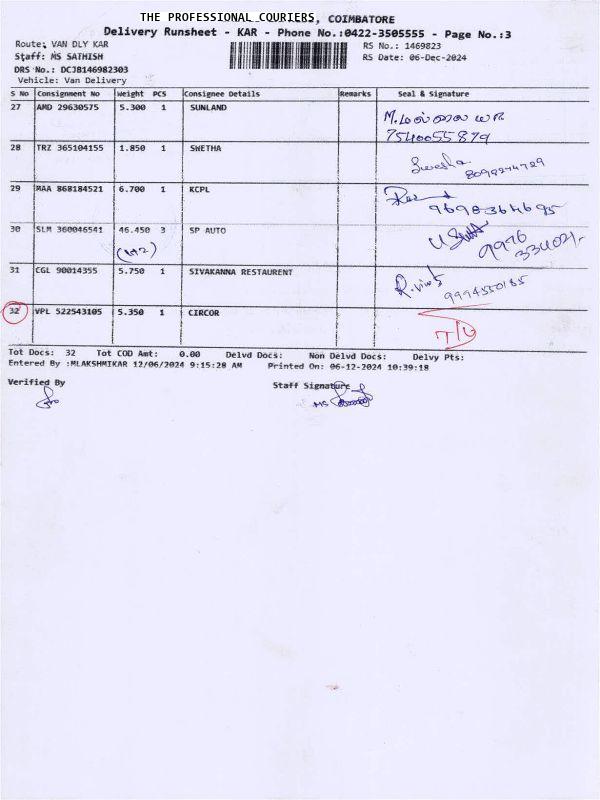 THE PROFESSIONAL COURIERS, COIMBATORE
Delivery Runsheet - KAR - Phone No.:0422-3505555 - Page No.:3
Route: VAN DLY KAR
RS No.: 1469823
Staff: MS SATHISH
RS Date: 06-Dec-2024
DRS No.: DCJB146982303
Vehicle: Van Delivery
S No Consignment No Weight PCS Consignee Details Remarks Seal & Signature
27 AMD 29630575 5.300 1 SUNLAND
7540055879
28 TRZ 365104155 1.850 1 SWETHA Swetha
29 MAA 868184521 6.700 1 KCPL
30 SLM 360046541 46.450 3 SP AUTO
31 CGL 90014355 5.750 1 SIVAKANNA RESTAURENT
9994550185
32 VPL 522543105 5.350 1 CIRCOR
Tot Docs: 32 Tot COD Amt: 0.00 Delvd Docs: Non Delvd Docs: Delvy Pts:
Entered By :MLAKSHMIKAR 12/06/2024 9:15:28 AM Printed On: 06-12-2024 10:39:18
Verified By Staff Signature
MS